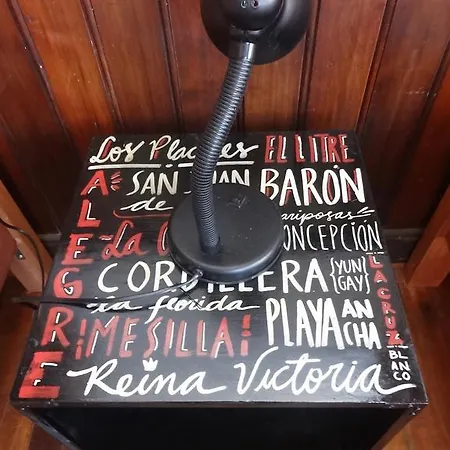 Los Placeres EL LITRE
ALEGRE
SAN JUAN BARÓN
de
mariposas
La
CONCEPCIÓN
CORDILLERA {YUN GAY}
La florida
PLAYA ANCHA
¡MESILLA!
LA CRUZ
BLANCO
Reina Victoria